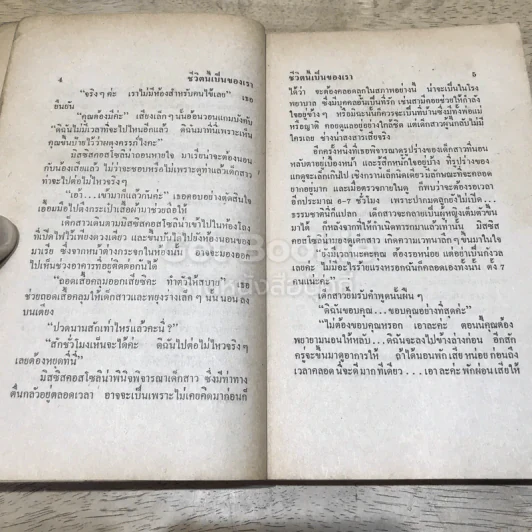 4 ชีวิตนี้เป็นของเรา
"จริงๆ ค่ะ เราไม่มีห้องสำหรับคนไข้เลย" เธอ
ยืนยัน
"คุณต้องมีค่ะ" เสียงเล็กๆ นั้นอ้อนวอนแกมบังคับ
"ดิฉันไม่มีเวลาที่จะไปไหนอีกแล้ว ดิฉันมาที่นี่เพราะเห็น
คุณขึ้นป้ายไว้ว่าผดุงครรภ์ไงคะ"
มิสซิสคอสโซลิน่าถอนหายใจ มาเรียน่าจะต้องนอน
กับน้องเสียแล้ว ไม่ว่าจะชอบหรือไม่เพราะดูท่าแล้วเด็กสาว
ท่าจะไปต่อไม่ไหวจริงๆ
"เอ้า...เข้ามาก็แล้วกันค่ะ" เธอคอบอย่างตัดสินใจ
เอื้อมมือไปดึงกระเป๋าเสื้อผ้ามาช่วยถือให้
เด็กสาวเดินตามมิสซิสคอสโซลิน่าเข้าไปในห้องโถง
ที่เปิดไฟไว้เพียงดวงเดียว และขึ้นบันไดไปยังห้องนอนของ
มาเรีย ซึ่งจากหน้าต่างกระจกในห้องนั้น อาจจะมองออก
ไปเห็นช่วงอาคารที่อยู่ติดต่อกันได้
"ถอดเสื้อคลุมออกเสียซิคะ ทำตัวให้สบาย" เธอ
ช่วยถอดเสื้อคลุมให้เด็กสาวและพยุงร่างเล็กๆ นั้น นอนลง
บนเตียง
"ปวดนานสักเท่าไหร่แล้วคะนี่?"
"สักชั่วโมงเห็นจะได้ค่ะ ดิฉันไปต่อไม่ไหวจริงๆ
เลยต้องหยุดที่นี่"
มิสซิสคอสโซลิน่าพินิจพิจารณาเด็กสาว ซึ่งมีท่าทาง
ตื่นกลัวอยู่ตลอดเวลา อาจจะเป็นเพราะไม่เคยคิดมาก่อนก็
ชีวิตนี้เป็นของเรา 5
ได้ว่า จะต้องคลอดลูกในสภาพอย่างนี้ น่าจะเป็นในโรง
พยาบาล ซึ่งมีบุคคลอันเป็นที่รัก เช่นสามีคอยช่วยให้กำลัง
ใจอยู่ข้างๆ หรือไม่ฉะนั้นก็ควรจะเป็นที่บ้านซึ่งมีทั้งพ่อแม่
หรือญาติ คอยดูแลอยู่อย่างใกล้ชิด แต่เด็กสาวผู้นี้กลับไม่มี
ใครเลย ช่างน่าสงสารเสียจริง
อีกครั้งหนึ่งที่เธอพิจารณาดูรูปร่างของเด็กสาวที่นอน
หลับตาอยู่เบื้องหน้า และรู้สึกหนักใจอยู่บ้าง ที่รูปร่างของ
แกดูจะเล็กเกินไป เชิงกรานเล็กนิดเดียวมีลักษณะที่จะคลอด
ยากอยู่มาก และเมื่อตรวจภายในดู ก็พบว่าจะต้องรอเวลา
อีกประมาณ 6-7 ชั่วโมง เพราะปากมดลูกยังไม่เปิด...
ธรรมชาตินี้ก็แปลก เด็กสาวจะกลายเป็นผู้หญิงเต็มตัวขึ้น
มาได้ ก็หลังจากที่ให้กำเนิดทารกมาแล้วเท่านั้น มิสซิส
คอสโซลิน่ามองดูเด็กสาว เกิดความเวทนาลึกๆ ขึ้นมาในใจ
"ยังมีเวลานะคะคุณ ต้องรอหน่อย แต่อย่าเป็นกังวล
เลยค่ะ ไม่มีอะไรร้ายแรงหรอกฉันก็คลอดเองทั้งนั้น ตั้ง 7
คนแน่ะค่ะ"
เด็กสาวยิ้มรับคำพูดนั้นฝืนๆ
"ดิฉันขอบคุณ...ขอบคุณอย่างที่สุดค่ะ"
"ไม่ต้องขอบคุณหรอก เอาละค่ะ ตอนนี้คุณต้อง
พยายามนอนให้หลับ...ดิฉันจะลงไปข้างล่างก่อน อีกสัก
ครู่จะขึ้นมาดูอาการให้ ถ้าได้นอนพักเสียหน่อยก่อนถึง
เวลาคลอดนี่จะดีมากทีเดียว...เอาละค่ะ พักผ่อนเสียให้